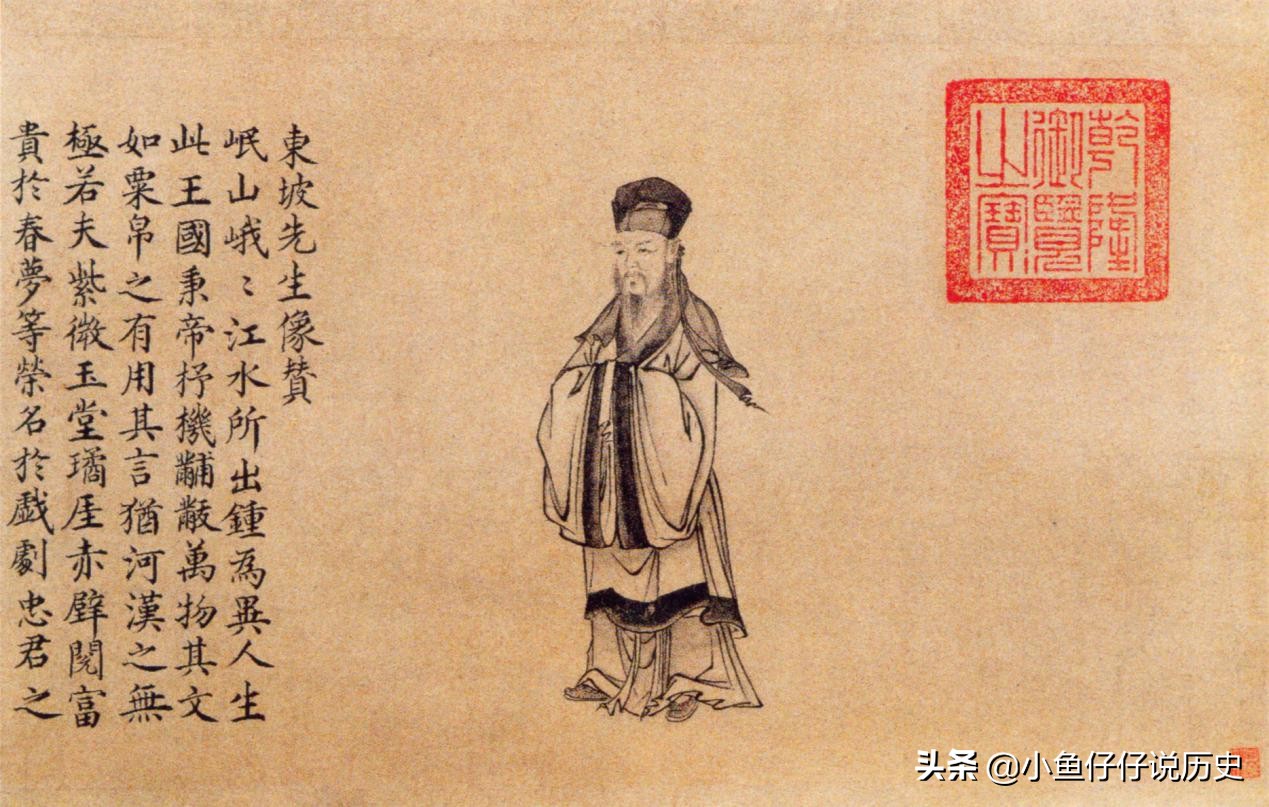 乾隆
御覽
之寶
東坡先生像賛
岷山峨〻江水所出鍾為異人生
此王國秉帝杼機黼黻萬物其文
如粟帛之有用其言猶河漢之無
極若夫紫微玉堂璚厓赤壁閱富
貴於春夢等榮名於戲劇忠君之
头条 @小鱼仔仔说历史